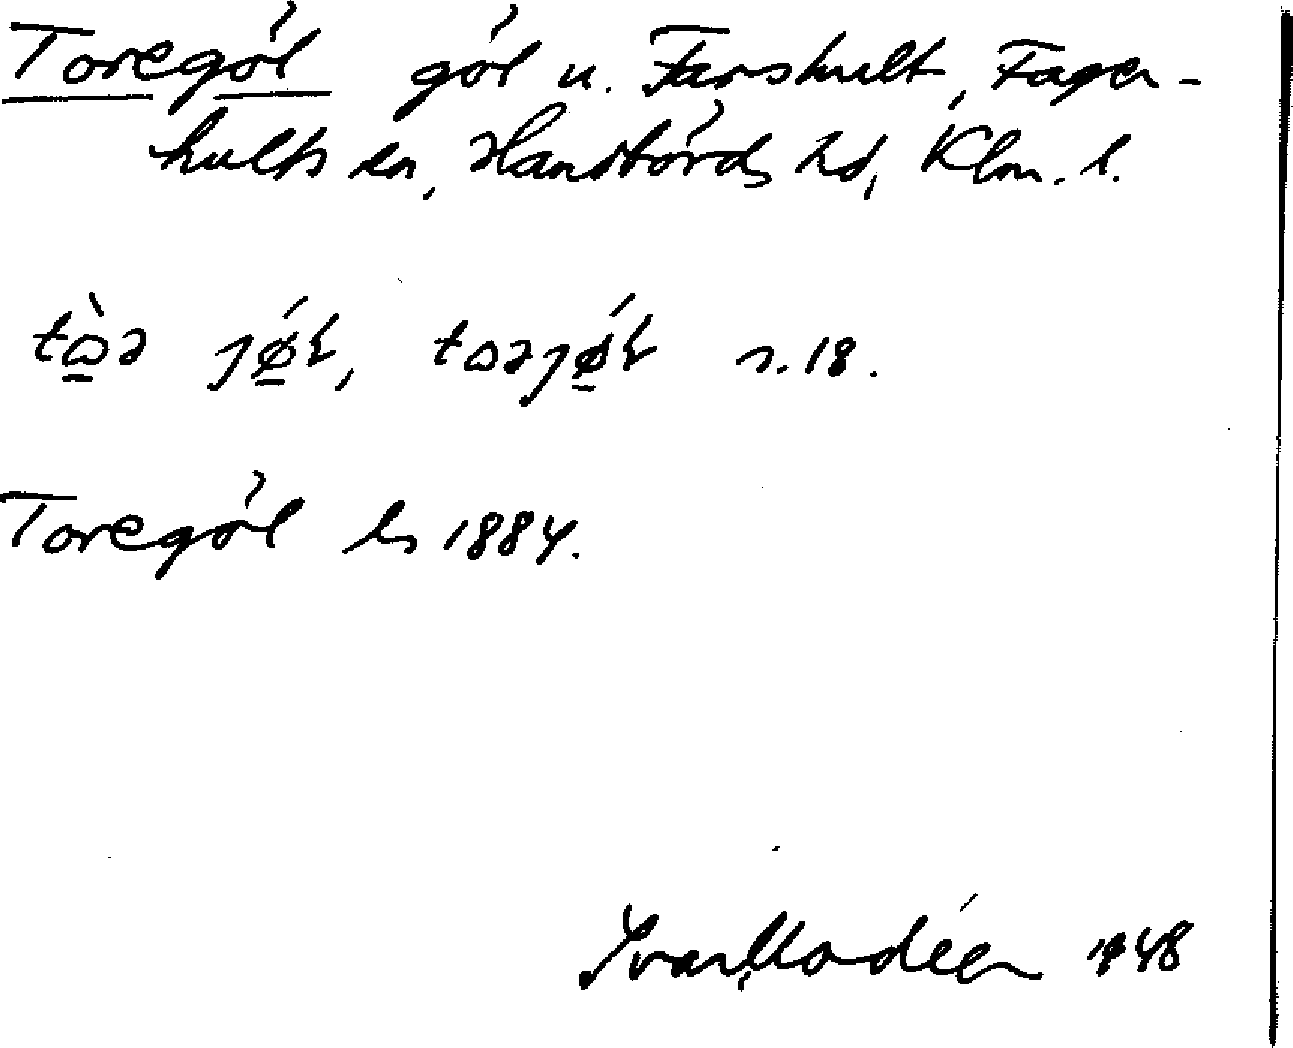 Toregöl göl u. Farshult, Fager-
hults sn, Handbörds hd, Klm. l.
tòə jǿl, toəjǿl s. 18.
Toregöl ls 1884.
Ivar Modéer 1948